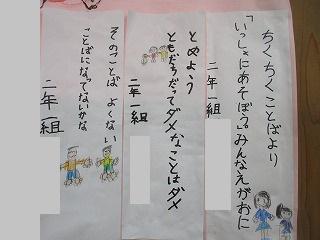 ちくちくことばより
「いっしょにあそぼう。」みんなえがおに
二年一組
とめよう
ともだちだってダメなことはダメ
二年一組
そのことば よくない
ことばになってないかな
二年一組